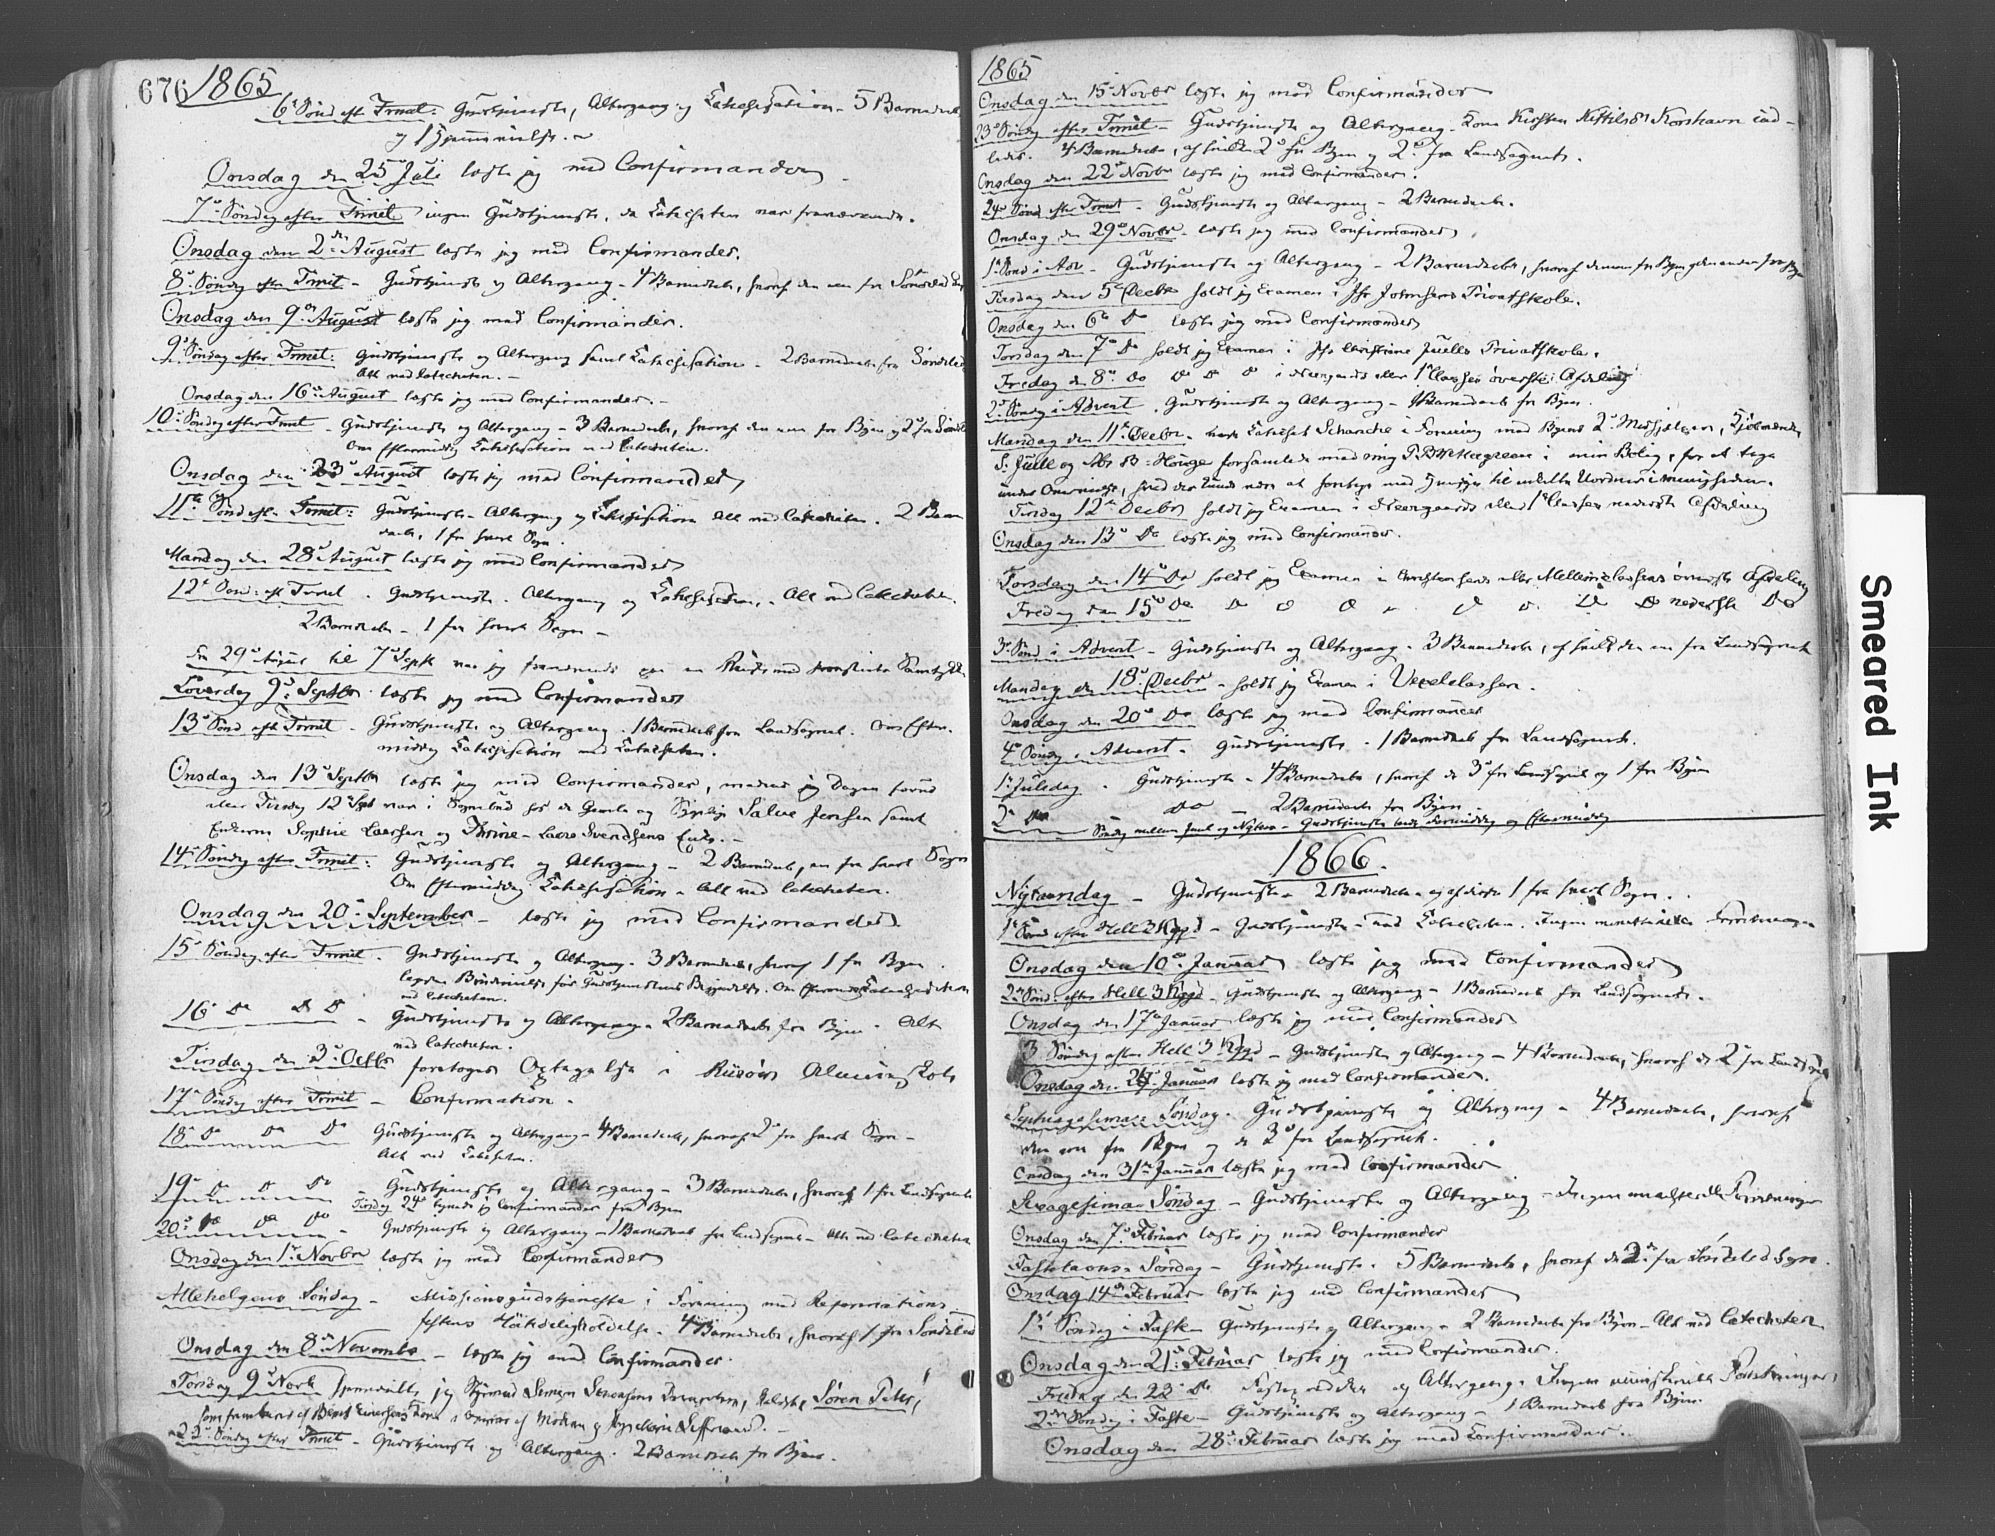 676 1865
6te Sønd eft Trinit: Gudstjeneste, Altergang og Katechisation – 5 Barnedaab
og 1 Hjemmevielse. –
Onsdag den 25de Juli læste jeg med Confirmander
7de Søndag efter Trinit ingen Gudstjeneste, da Katecheten var fraværende.
Onsdag den 2den August læste jeg med Confirmander.
8de Søndag efter Trinit – Gudstjeneste og Altergang – 4 Barnedaab, hvoraf den ene fra Søndeled
Onsdag den 9de August læste jeg med Confirmander.
9de Søndag efter Trinit: Gudstjeneste og Altergang samt Katechisation – 2 Barnedaab fra Søndeled
Alt ved Catecheten. –
Onsdag den 16de August læste jeg med Confirmander. –
10de Søndag efter Trinit – Gudstjeneste og Altergang – 3 Barnedaab, hvoraf den ene fra Byen og 2de fra
Om Eftermiddag Katechisation ved Catecheten.
Onsdag den 23de August læste jeg med Confirmander
11te Sønd eft. Trinit: Gudstjeneste – Altergang og Katechisation Alt ved Catecheten. 2 Barne
daab, 1 fra hvert Sogn.
Mandag den 28de August læste jeg med Confirmander
12te Sønd: eft Trinit. Gudstjeneste. Altergang og Katechisation. – Alt ved Catecheten.
2 Barnedaab – 1 fra hvert Sogn –
Fra 29de August til 7de Septb var jeg fraværende paa en Reise med
Løverdag 9de Septbr læste jeg med Confirmander
13de Sønd eft Trinit – Gudstjeneste og Altergang. 1 Barnedaab fra Landsognet. Om Efter-
middag Katechisation ved Katecheten.
Onsdag den 13de Septbr læste jeg med Confirmander, medens jeg Dagen forud
eller Tirsdag 12te Sept var i Sognebud hos de Gamle og Sygelige Salve Jensen samt
Enkerne Sophie Larsen og Thrine – Lars Svendsens Enke. –
14de Søndag efter Trinit: Gudstjeneste og Altergang – 2 Barnedaab, en fra hvert Sogn
Om Eftermiddag Katechisation – Alt ved Catecheten.
Onsdag den 20de September – læste jeg med Confirmander.
15de Søndag efter Trinit. Gudstjeneste og Altergang. 3 Barnedaab, hvoraf 1 fra Byen.
ved Catecheten.
16de Do Do Do – Gudstjeneste og Altergang – 2 Barnedaab fra Byen. Alt
ved Catecheten.
Tirsdag den 3de Octbr foretoges Optagelse i Risørs Almueskole
17de Søndag efter Trinit – Confirmation.
18de Do Do Do Gudstjeneste og Altergang – 4 Barnedaab, hvoraf 2de fra hvert Sogn –
Alt ved Katecheten.
19de Do Do Do – Gudstjeneste og Altergang – 3 Barnedaab, hvoraf 1 fra Landsognet
Tirsdag 24de begyndte jeg Confirmander fra Byen
20de Do Do Do – Gudstjeneste og Altergang – 1 Barnedaab fra Landsognet – Alt ved Catecheten
Onsdag den 1ste Novbr læste jeg med Confirmander
Allehelgens Søndag – Missionsgudstjeneste i Forening med Reformations
festens Høitideligholdelse. 4 Barnedaab, hvoraf 1 fra Søndeled
Onsdag den 8de Novembr – læste jeg med Confirmander.
Torsdag 9de Novb hjemmedøbte jeg Søren Peter,
22de Søndag efter Trinit – Gudstjeneste og Altergang. 2 Barnedaab fra Byen.
1865
Onsdag den 15de Novbr læste jeg med Confirmander
23de Søndag efter Trinit – Gudstjeneste og Altergang. Kone Kirsten Korshavn ind-
ledet. 4 Barnedaab, af hvilke 2de fra Byen og 2de fra Landsognet.
Onsdag den 22de Novbr læste jeg med Confirmander.
24de Sønd efter Trinit – Gudstjeneste og Altergang – 2 Barnedaab.
Onsdag den 29de Novbr – læste jeg med Confirmander
1ste Sønd i Adv – Gudstjeneste og Altergang – 2 Barnedaab, hvoraf den ene fra Byen
Tirsdag den 5te Decbr holdt jeg Examen i Johnsens Privatskole.
Onsdag den 6te Do læste jeg med Confirmander
Torsdag den 7de Do holdt jeg Examen i Christine Juells Privatskole.
Fredag den 8de Do Do Do Do i Neergaards eller 1ste Classes øverste Afdeling
2den Søndag i Advent. Gudstjeneste og Altergang – 1 Barnedaab fra Byen.
Mandag den 11te Decbr – Katechet Schanche i Forening med Byens 2de Medhjælpere, Kjøbmænd
S: Juell og B: Houge forsamlede med mig i min Bolig, for at tage
under Overveielse, hvad der kunde være at foretage
Tirsdag 12te Decbr holdt jeg Examen i Neergaards eller 1ste Classes nederste Afdeling
Onsdag den 13de Do læste jeg med Confirmander.
Torsdag den 14de Do holdt jeg Examen i Christensens eller Mellemclassens øverste Afdeling
Fredag den 15de Do Do Do Do Do Do Do nederste Do
3de Sønd i Advent – Gudstjeneste og Altergang – 3 Barnedaab, af hvilke den ene fra Landsognet
Mandag den 18de Decbr – holdt jeg Examen i Vexelclassen.
Onsdag den 20de Do læste jeg med Confirmander
4de Søndag i Advent – Gudstjeneste. 1 Barnedaab fra Landsognet.
1ste Juledag. Gudstjeneste – 4 Barnedaab, hvoraf de 3de fra Landsognet og 1 fra Byen
2den Do Do – 2 Barnedaab fra Byen
Søndag mellem Juul og Nytaar – Gudstjeneste baade Formiddag og Eftermiddag
1866.
Nytaarsdag – Gudstjeneste – 2 Barnedaab – og af disse 1 fra hvert Sogn.
1ste Sønd efter Hell 3 Kgd – Gudstjeneste – ved Katecheten. Ingen ministerielle Forretninger
Onsdag den 10de Januar læste jeg med Confirmander
2den Sønd. efter Hell 3 Kgd – Gudstjeneste og Altergang – 1 Barnedaab fra Landsognet.
Onsdag den 17de Januar læste jeg med Confirmander
3 Søndag efter Hell 3 Kgd – Gudstjeneste og Altergang – 4 Barnedaab, hvoraf de 2de fra Landsognet
Onsdag den 24de Januar læste jeg med Confirmander.
Septuagesimae Søndag. Gudstjeneste og Altergang – 4 Barnedaab, hvoraf
den ene fra Byen og de 3de fra Landsognet.
Onsdag den 31te Januar læste jeg med Confirmander
Sexagesimae Søndag – Gudstjeneste og Altergang – Ingen ministerielle Forretninger
Onsdag den 7de Februar læste jeg med Confirmander
Fastelavns Søndag – Gudstjeneste. 5 Barnedaab, hvoraf de 2de fra Søndeled Sogn.
Onsdag 14de Februar læste jeg med Confirmander
1ste Søndag i Faste Gudstjeneste og Altergang – 2 Barnedaab fra Byen – Alt ved Catecheten
Onsdag den 21de Februar læste jeg med Confirmander.
Fredag den 23de Do og Altergang. Ingen ministerielle Forretninger
2den Søndag i Faste – Gudstjeneste og Altergang – 1 Barnedaab fra Byen
Onsdag den 28de Februar læste jeg med Confirmander.
Smeared Ink